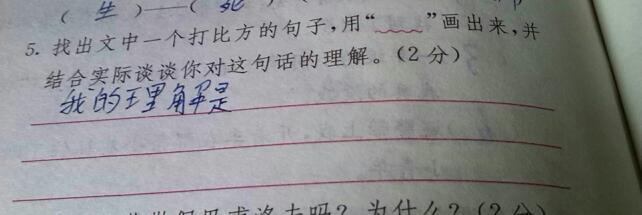 （生）——（死）
5. 找出文中一个打比方的句子，用“﹏﹏”画出来，并
结合实际谈谈你对这句话的理解。（2分）
我的理解是
吗？为什么？（2分）